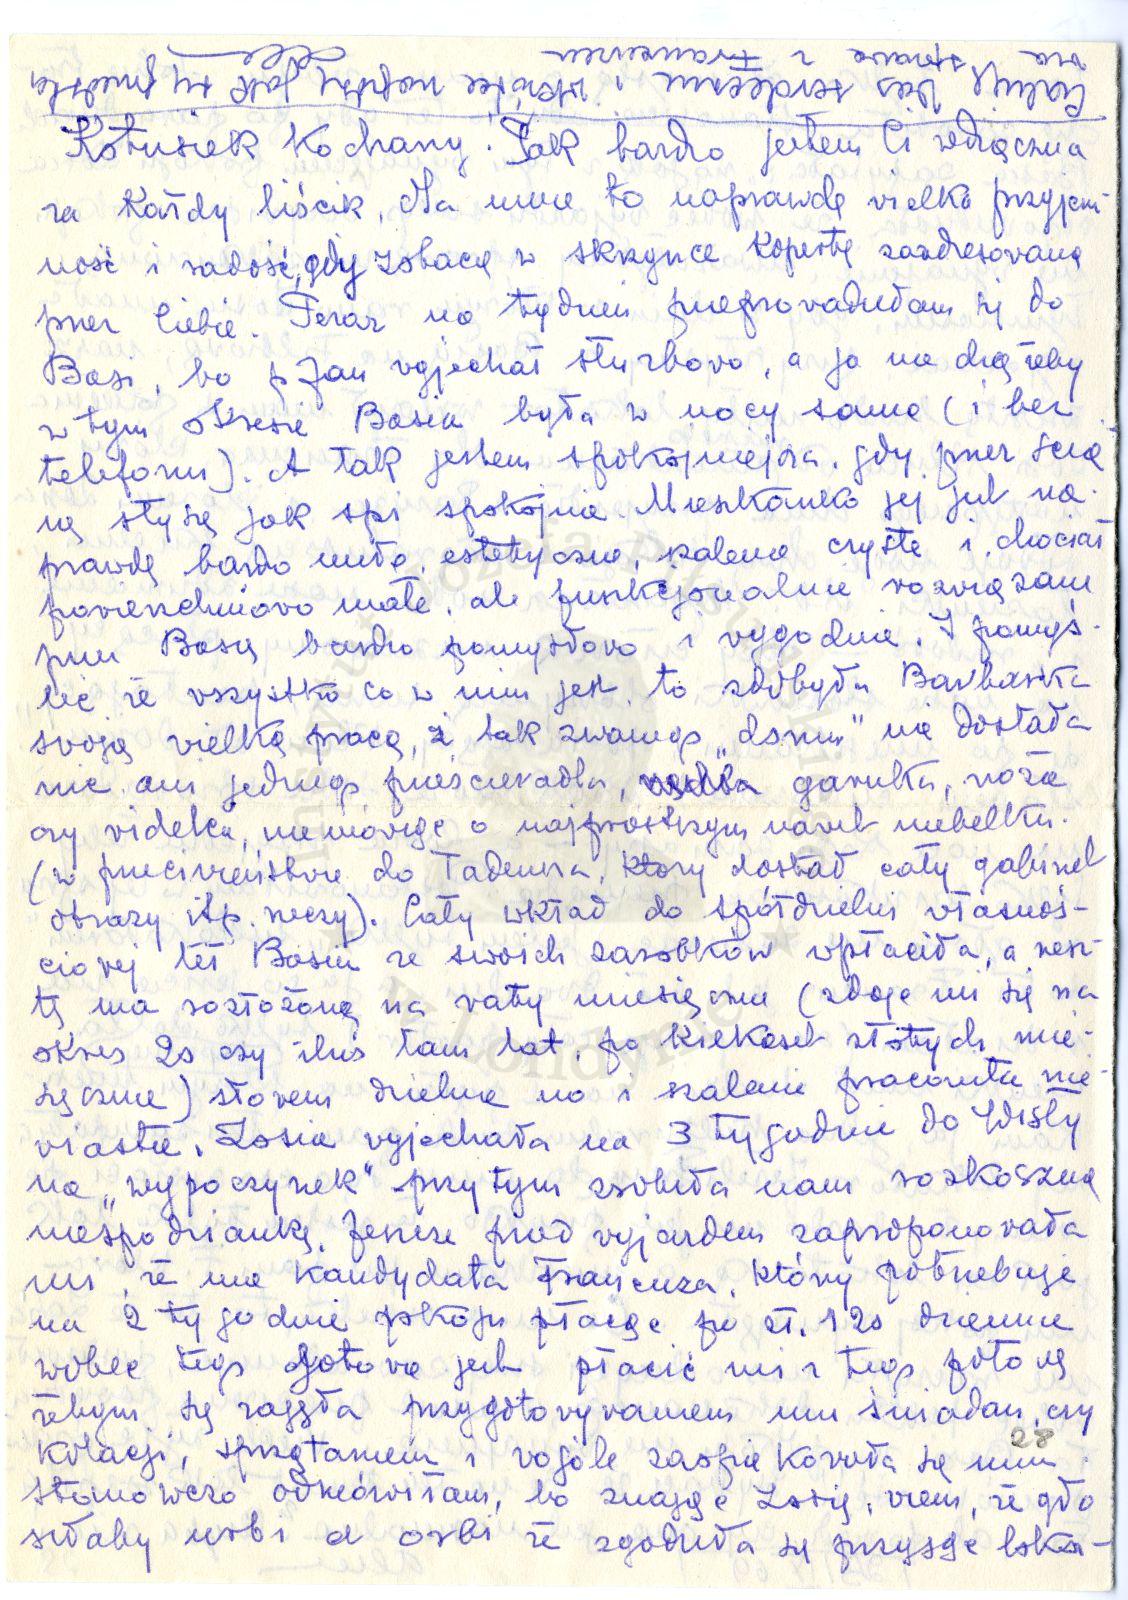 Całuję Was serdecznie i
na sprawa z Francuzem
Kotusiek Kochany! Tak bardzo jestem Ci wdzięczna
za każdy liścik. Dla mnie to naprawdę wielka przyjem-
ność i radość, gdy zobaczę w skrzynce kopertę zaadresowaną
przez Ciebie. Teraz na tydzień przeprowadziłam się do
Basi, bo p. Jan wyjechał służbowo, a ja nie chcę żeby
w tym okresie Basia była w nocy sama (i bez
telefonu). A tak jestem spokojniejsza, gdy przez ścia-
nę słyszę jak śpi spokojnie. Mieszkanko jej jest na-
prawdę bardzo miłe, estetyczne, szalenie czyste i, chociaż
powierzchniowo małe, ale funkcjonalnie rozwiązane
przez Basię bardzo pomysłowo i wygodnie. I pomyś-
leć że wszystko co w nim jest, to zdobyła Barbaśka
swoją wielką pracą, z tak zwanego „domu” nie dostała
nic ani jednego prześcieradła, garnka, noża
czy widelca, nie mówiąc o najprostszym nawet mebelku.
(w przeciwieństwie do Tadeusza, który dostał cały gabinet
obrazy itp. rzeczy). Cały wkład do spółdzielni własnoś-
ciowej też Basia ze swoich zarobków wpłaciła, a resz-
tę ma rozłożoną na raty miesięczne (zdaje mi się na
okres 20 czy iluś tam lat, po kilkaset złotych mie-
sięcznie) słowem dzielna no i szalenie pracowita nie-
wiasta. Zosia wyjechała na 3 tygodnie do Wisły
na „wypoczynek” przy tym zrobiła nam rozkoszną
niespodziankę. Jeszcze przed wyjazdem zaproponowała
mi, że ma kandydata Francuza, który potrzebuje
na 2 tygodnie pokoju płacąc po zł. 120 dziennie
wobec tego gotowa jest płacić mi z tego połowę
żebym się zajęła przygotowywaniem mu śniadań, czy
kolacji, sprzątaniem i wogóle zaopiekowała się nim.
28
Stanowczo odmówiłam, bo znając Zosię, wiem, że gło-
siłaby urbi et orbi że zgodziła się przyjąć loka-